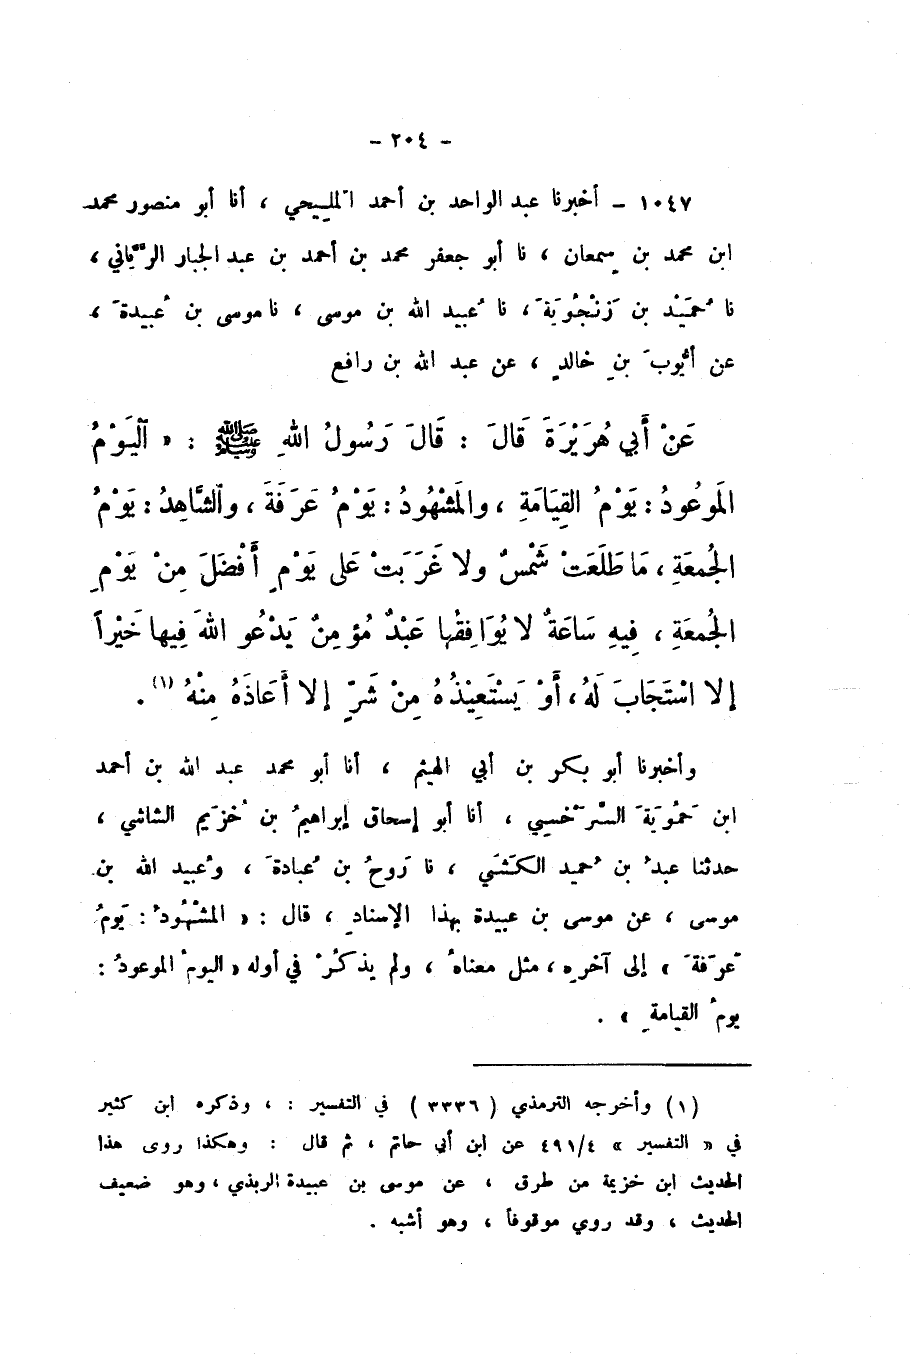 - ٢٠٤ -
١٠٤٧ - أخبرنا عبد الواحد بن أحمد المَليحي ، أنا أبو منصور محمد
ابن محمد بن سِمعان ، نا أبو جعفر محمد بن أحمد بن عبد الجبار الرَّيّاني ،
نا حُمَيْد بن زَنْجُوَيَةَ ، نا عُبيد الله بن موسى ، نا موسى بن عُبيدةَ ،
عن أيُّوبَ بنِ خالدٍ ، عن عبد الله بن رافع
عَنْ أَبي هُرَيْرَةَ قَالَ : قَالَ رَسُولُ اللهِ ﷺ : « اَليَوْمُ
المَوعُودُ : يَوْمُ القِيَامَةِ ، والمَشْهُودُ : يَوْمُ عَرَفَةَ ، والشَّاهِدُ : يَوْمُ
الجُمعَةِ ، مَا طَلَعَتْ شَمْسٌ ولا غَرَبَتْ عَلى يَوْمٍ أَفْضَلَ مِنْ يَوْمِ
الجُمعَةِ ، فِيهِ سَاعَةٌ لا يُوَافِقُها عَبْدٌ مُؤمِنٌ يَدْعُو اللهَ فِيها خَيْراً
إلا اسْتَجَابَ لَهُ ، أَوْ يَسْتَعِيْذُهُ مِنْ شَرٍّ إلا أَعَاذَهُ مِنْهُ (١) .
وأخبرنا أبو بكر بن أبي الهيثم ، أنا أبو محمد عبد الله بن أحمد
ابن حَمُّويَةَ السَّرَخسِي ، أنا أبو إسحاق إبراهيمُ بن خُزَيم الشاشي ،
حدثنا عبدُ بن حُميد الكَشّي ، نا رَوحُ بن عُبادةَ ، وعُبيد الله بن
موسى ، عن موسى بن عبيدة بهذا الإسنادِ ، قال : « المشْهُودُ : يَومُ
عَرَفةَ » إلى آخرِه ، مثل معناهُ ، ولم يذكُرْ في أوله « اليومُ الموعودُ :
يومُ القيامةِ » .
(١) وأخرجه الترمذي ( ٣٣٣٦ ) في التفسير : ، وذكره ابن كثير
في « التفسير » ٤٩١/٤ عن ابن أبي حاتم ، ثم قال : وهكذا روى هذا
الحديث ابن خزيمة من طرق ، عن موسى بن عبيدة الربذي ، وهو ضعيف
الحديث ، وقد روي موقوفاً ، وهو أشبه .